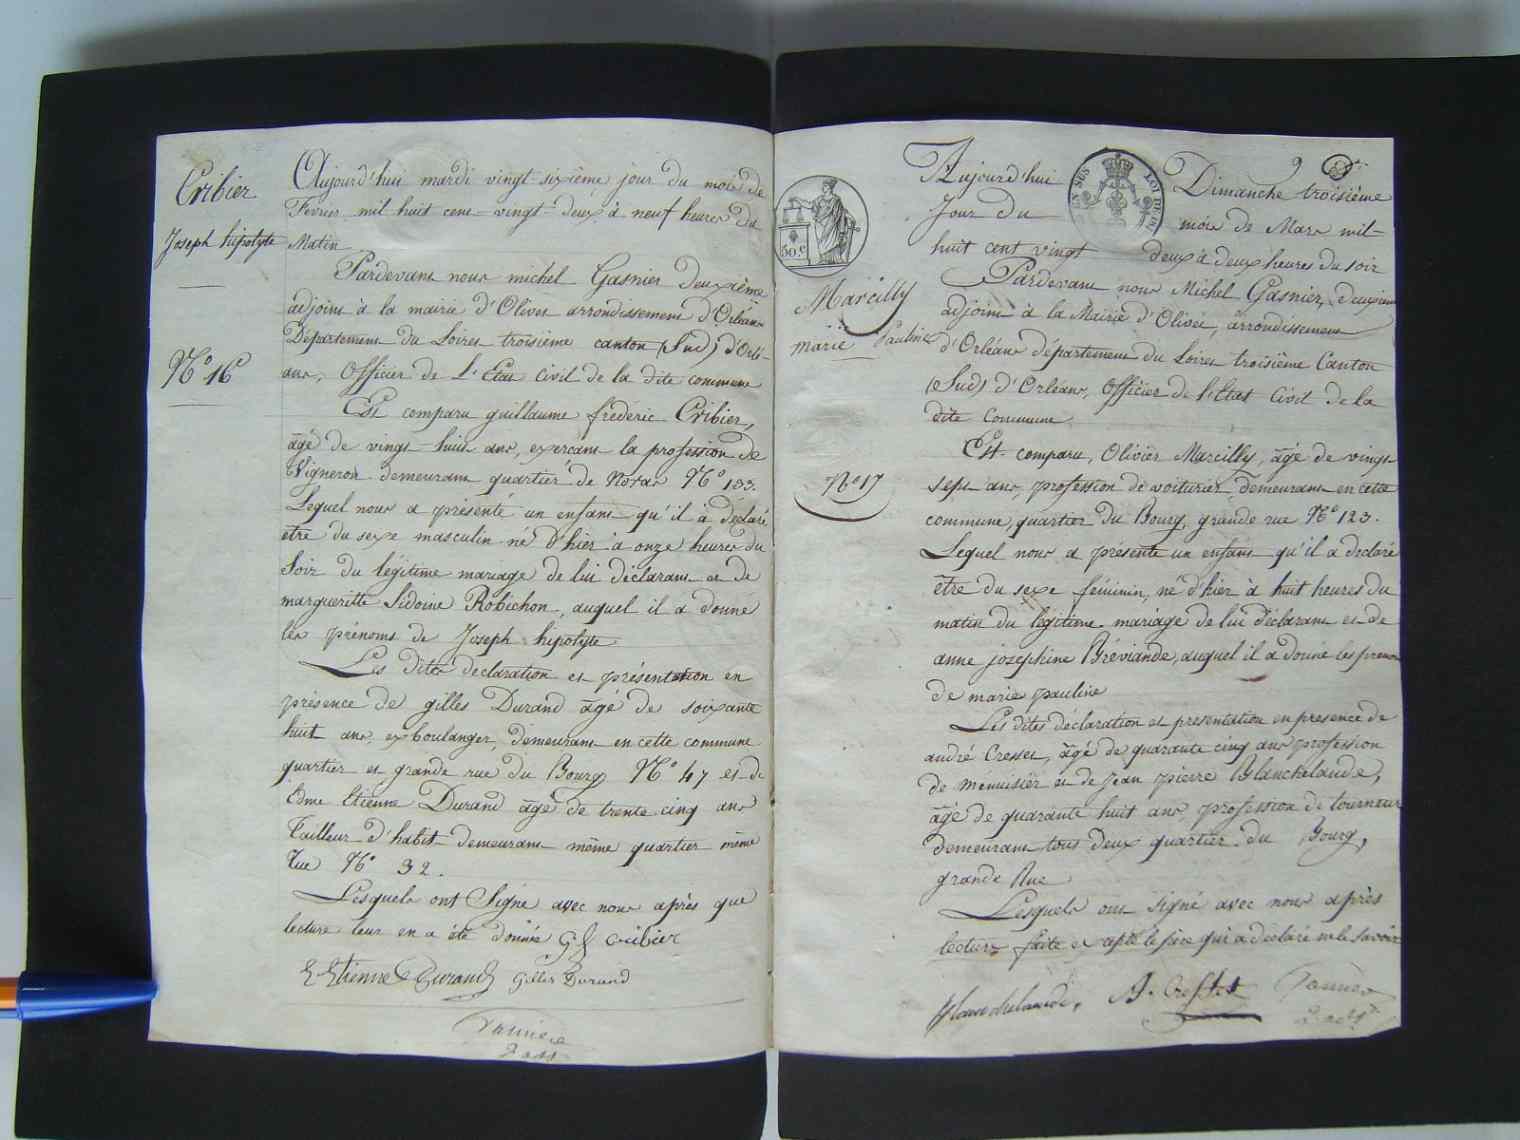 Cribier
Joseph hipolyte
N° 16
Aujourd'hui mardi vingt-sixième jour du mois de
Fevrier mil huit cent-vingt-deux à neuf heures du
Matin
Pardevant nous michel Gasnier deuxième
adjoint à la mairie d'Olivet arrondissement d'Orléans
Département du Loiret troisième canton (Sud) d'Orlé-
ans, Officier de L'Etat Civil de la dite commune
Est comparu guillaume frédéric Cribier,
âgé de vingt-huit ans, exercant la profession de
Vigneron demeurant quartier de Noras N° 133.
Lequel nous a présenté un enfant qu'il à déclaré
etre du sexe masculin né d'hier à onze heures du
Soir du légitime mariage de lui déclarant et de
margueritte Sidoine Robichon, auquel il a donné
les prénoms de Joseph hipolyte
Les dites declaration et présentation en
présence de gilles Durand âgé de soixante
huit ans, ex boulanger, demeurant en cette commune
quartier et grande rue du Bourg N° 47 et de
Edme Etienne Durand âgé de trente cinq ans
Tailleur d'habit demeurant même quartier même
rue N° 32.
Lesquels ont Signé avec nous après que
lecture leur en a été donnée G f cribier
E Etienne Durand Gilles Durand
50.c
Marcilly
marie Pauline
N° 17
9
Aujourd'hui Dimanche troisième
Jour du mois de Mars mil-
huit cent vingt deux à deux heures du soir
Pardevant nous Michel Gasnier, deuxième
adjoint à la Mairie d'Olivet, arrondissement
d'Orléans département du Loiret troisième Canton
(Sud) d'Orléans, Officier de l'Etat Civil de la
dite Commune
Est comparu, Olivier Marcilly, âgé de vingt-
sept ans, profession de voiturier, demeurant en cette
commune, quartier du Bourg, grande rue N° 123.
Lequel nous a présenté un enfant qu'il a declaré
être du sexe féminin, né d'hier à huit heures du
matin du légitime mariage de lui déclarant et de
anne josephine Bréviande, auquel il a donné les prenoms
de marie pauline
Les dites déclaration et presentation en presence de
andré Cresset, âgé de quarante cinq ans profession
de ménuisier et de Jean pierre Blanchelaude,
âgé de quarante huit ans, profession de tourneur
demeurant tous deux quartier du Bourg,
grande Rue
Lesquels ont signé avec nous après
lecture faite excepté le père qui a déclaré ne le savoir
Blanchelaude, A. Cresset